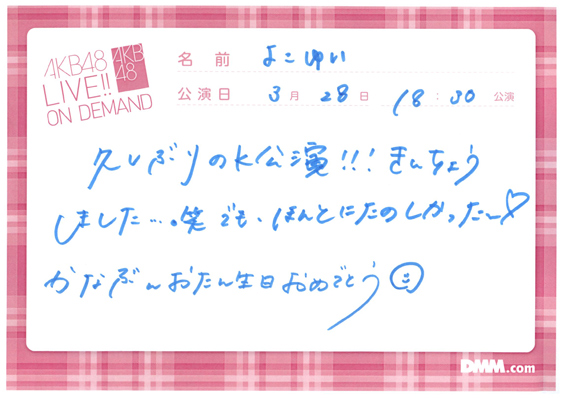 AKB48
LIVE!!
ON DEMAND
AKB
48
名前 よこゆい
公演日 3月28日 18:30 公演
久しぶりのK公演!!!きんちょう
しました…。笑 でも、ほんとにたのしかったー♡
かなぶんおたん生日おめでとう☺
DMM.com